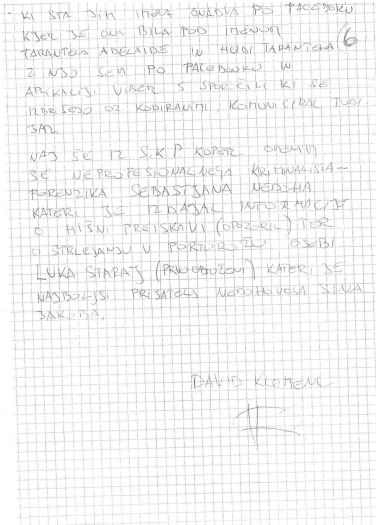 - KI STA JIH IMELA ONADVA PO FACEBOOKU
KJER JE ONA BILA POD IMENOM
TARANTELA ADELAIDE IN HUDI TARANTELA
6
Z NJO SEM PO FACEBOOKU IN
APLIKACIJI VIBER S SPOROČILI KI SE
IZBRIŠEJO OZ KODIRANIMI, KOMUNICIRAL TUDI
JAZ
NAJ ŠE IZ S.K.P KOPER OMENIM
ŠE NEPROFESIONALNEGA KRIMINALISTA-
FORENZIKA SEBASTJANA NEDOHA
KATERI JE IZDAJAL INFORMACIJE
O HIŠNI PREISKAVI (OPOZORIL) TER
O STRELJANJU V PORTOROŽU OSEBI
LUKA STARAJ (PRVOOBTOŽENI) KATERI JE
NAJBOLJŠI PRIJATELJ NEDOHOVEGA SINA
JAKOBA.
DAVID KLEMENC